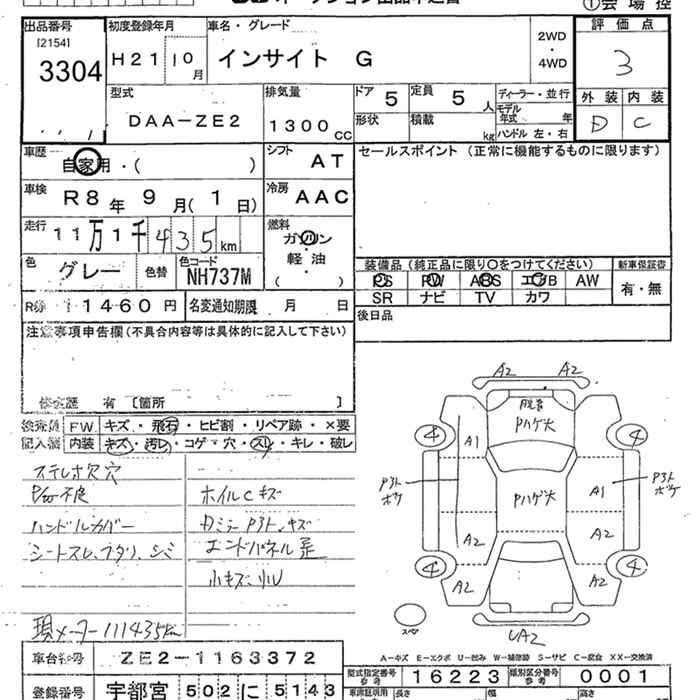 オークション出品申込書
①会場控
出品番号
[2154]
3304
初度登録年月
H21 10月
車名・グレード
インサイト G
2WD
・
4WD
評価点
3
外装 内装
D C
型式
DAA-ZE2
排気量
1300cc
ドア 5
定員 5人
形状
積載 kg
ディーラー・並行
モデル年式 年
ハンドル 左・右
車歴
自家用・( )
シフト AT
セールスポイント (正常に機能するものに限ります)
車検
R8年 9月( 1日)
冷房 AAC
走行
11万1千435km
燃料
ガソリン
軽油
( )
色 グレー
色替
色コード NH737M
装備品 (純正品に限り○をつけてください)
新車保証書
PS PW ABS エアB AW
有・無
SR ナビ TV カワ
R券 11460円
名変通知期限 月 日
後日品
注意事項申告欄(不具合内容等は具体的に記入して下さい)
修復歴 有 [箇所 ]
検査員
記入欄
FW キズ・飛石・ヒビ割・リペア跡・×要
内装 キズ・汚レ・コゲ・穴・スレ・キレ・破レ
ステレオ欠穴
ハンドルカバー
ホイルCキズ
エンドパネル歪
小キズ・小U
現メーター111435km
A2 A2
Pハゲ大
4 4
A1
P3トボケ
Pハゲ大
A1
P3トボケ
A2 A2
4 4
A2 A2
スペア
UA2
A-キズ E-エクボ U-凹み W-補修跡 S-サビ C-腐食 XX-交換済
車台番号
ZE2-1163372
型式指定番号 参考 16223
類別区分番号 参考 0001
登録番号
宇都宮 502 に 5143
長さ
幅
高さ